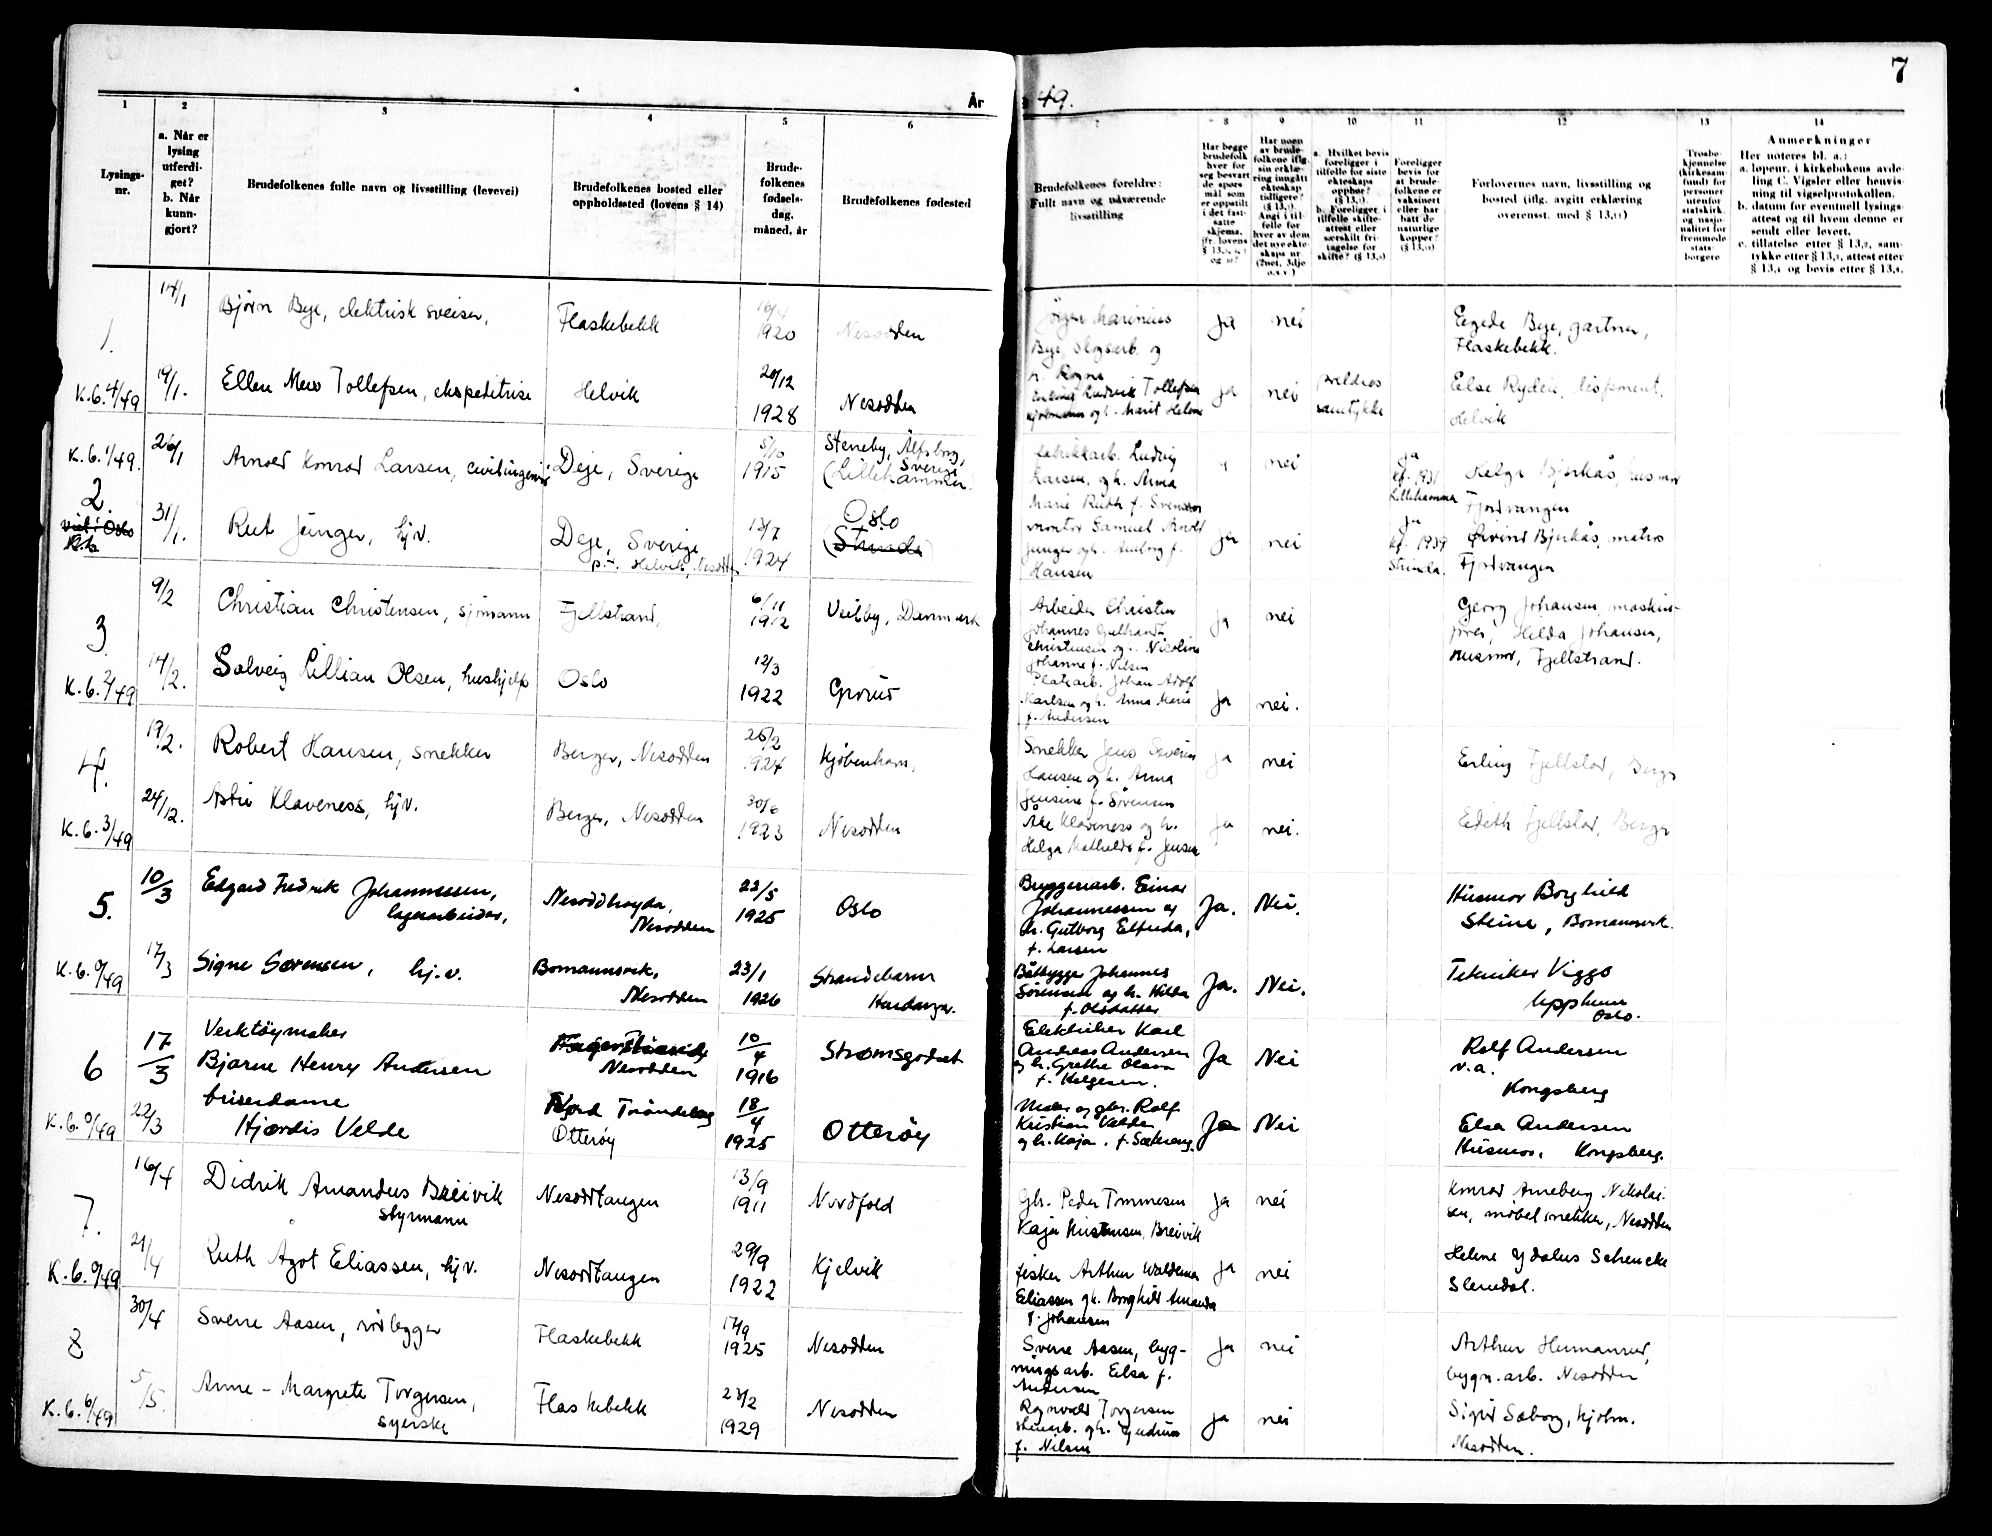 7
År 49.
1
2
3
4
5
6
7
8
9
10
11
12
13
14
Lysings-
nr.
a. Når er
lysing
utferdi-
get?
b. Når
kunn-
gjort?
Brudefolkenes fulle navn og livsstilling (levevei)
Brudefolkenes bosted eller
oppholdssted (lovens § 14)
Brude-
folkenes
fødsels-
dag,
måned, år
Brudefolkenes fødested
Brudefolkenes foreldre:
Fullt navn og nåværende
livsstilling
Har begge
brudefolk
hver for
seg besvart
de spørs-
mål som
er oppstilt
i det fast-
satte
skjema.
Har noen
av brude-
folkene iflg.
sin erklæ-
ring inngått
ekteskap
tidligere?
Angi i til-
felle for
hver av dem
det nye ekte-
skaps nr
(2net, 3dje
o.s.v.)
a. Hvilket bevis
foreligger i
tilfelle for siste
ekteskaps
opphør?
b. Foreligger i
tilfelle skifte-
attest eller
særskilt fri-
tagelse for
skifte?
Foreligger
bevis for
at brude-
folkene er
vaksinert
eller har
hatt de
naturlige
kopper?
Forlovernes navn, livsstilling og
bosted (iflg. avgitt erklæring
overensst. med § 13,
Trosbe-
kjennelse
(kirkesam-
fund) for
personer
utenfor
statskirk.
og nasjo-
nalitet for
fremmede
stats-
borgere
Anmerkninger
Her noteres bl. a.:
a. løpenr. i kirkebokens avde-
ling C. Vigsler eller henvis-
ning til vigselprotokollen.
b. datum for eventuell lysings-
attest og til hvem denne er
sendt eller levert.
c. tillatelse etter § 13, sam-
tykke etter § 13, attest etter
§ 13, og bevis etter § 13,
1.
14/1
Bjørn Bye, elektrisk sveiser,
Flaskebekk
16/4
1920
Nesodden
Marinius
Bye, og
Ja
nei
Egede Bye, gartner,
Flaskebekk.
K.b. 4/49
19/1.
Ellen Tollefsen, ekspeditrise
Helvik
20/12
1928
Nesodden
Ludvik Tollefsen
og h. Marit Helene
Ja
nei
samtykke
Else
Helvik
K.b. 1/49.
2
26/1
Arnold Konrad Larsen,
Deje, Sverige
5/10
1915
Steneby, Älfsborg,
Sverige
(Lillehammer.
fabrikkarb. Ludvig
Larsen, og h. Anna
Marie Ruth f. Svensson
nei
ja
1931
Lillehammer
Helga Bjerkås, husmor
Fjordvangen
31/1.
Rut Junger, hjv.
Deje, Sverige,
p.t. Helvik, Nesodden
13/7
1924
Oslo
(Strinda)
montør Samuel
Junger og h. f.
Hansen
ja
nei
ja
1939
Strinda.
Øivind Bjerkås, matros
Fjordvangen
3.
9/2
Christian Christensen, sjömann
Fjellstrand,
6/11
1912
Veilby, Danmark
Arbeider Christen
Johannes
Christensen og Nicoline
Johanne f. Nilsen
Ja
nei
Georg Johansen, maskin-
Hilda Johansen,
husmor, Fjellstrand.
K.b. 2/49
14/2.
Solveig Lillian Olsen, hushjelp
Oslo
12/3
1922
Grorud
Platearb. Johan Adolf
Karlsen og h. Anna Marie
f. Andersen
Ja
nei.
4.
19/2.
Robert Hansen, snekker
Berger, Nesodden
26/2
1924
Kjøbenhavn,
Snekker Jens Severin
Hansen og h. Anna
Jensine f. Sørensen
Ja
nei
Erling Fjellstad, Berger
K.b. 3/49
24/12.
Klaveness, hjv.
Berger, Nesodden
30/6
1923
Nesodden
Klaveness og h.
Helga Mathilde f. Jensen
Ja
nei.
Edith Fjellstad, Berger
5.
10/3
Edgard Fredrik Johannessen,
lagerarbeider,
Nesoddhøgda,
Nesodden
23/5
1925
Oslo
Bryggeriarb. Einar
Johannessen og
h. Gutborg Elfrida,
f. Larsen
Ja.
Nei.
Husmor Borghild
Steine, Bomannsvik.
K.b. 0/49
17/3
Signe Sørensen, hj.v.
Bomannsvik,
Nesodden
23/1
1926
Strandebarm
Hardanger.
Båtbygger Johannes
Sörensen og h. Hilda
f. Olsdatter
Ja.
Nei.
Tekniker Viggo
Upphum
Oslo.
6
17/3
Verktöymaker
Bjarne Henry Andersen
Nesodden
10/4
1916
Strømsgodset
Elektriker Karl
Andreas Andersen
og h. Grethe Olava
f. Helgesen.
Ja
Nei
Rolf Andersen
v.a.
Kongsberg
K.b. 0/49
22/3
friserdame
Hjørdis Velde
Nord Trøndelag
Otterøy
18/4
1925
Otterøy
Rolf
Kristian Velde
og h. Kaja. f. Sæternes.
Ja
Nei
Elsa Andersen
Husmor, Kongsberg.
7.
16/4
Didrik Amandus Breivik
styrmann
Nesoddtangen
13/9
1911
Nordfold
Gbr. Peder Tommesen
Kaja Kristensen, Breivik
Ja
nei
Konrad Arneberg Nikolai-
sen, møbelsnekker, Nesodden
K.b. 0/49
21/4
Ruth Agot Eliassen, hjv.
Nesoddtangen
29/9
1922
Kjelvik
fisker Arthur Waldemar
Eliassen og h. Borghild Amanda
f. Johansen
Ja
nei
Helene Ydalus Schencke
Slemdal.
8
30/4
Sverre Aasen, rørlegger
Flaskebekk
17/9
1925
Nesodden
Sverre Aasen, byg-
ningsarb. Elsa f.
Andersen
Ja
nei
Arthur Hermansrud,
bygn. arb. Nesodden
K.b. 6/49
5/5.
Anne-Margrete Torgersen,
syerske
Flaskebekk
23/2
1929
Nesodden
Ragnvald Torgersen
og h. Gudrun
f. Nilsen
Ja
nei
Sigrid Sæborg,
Nesodden.